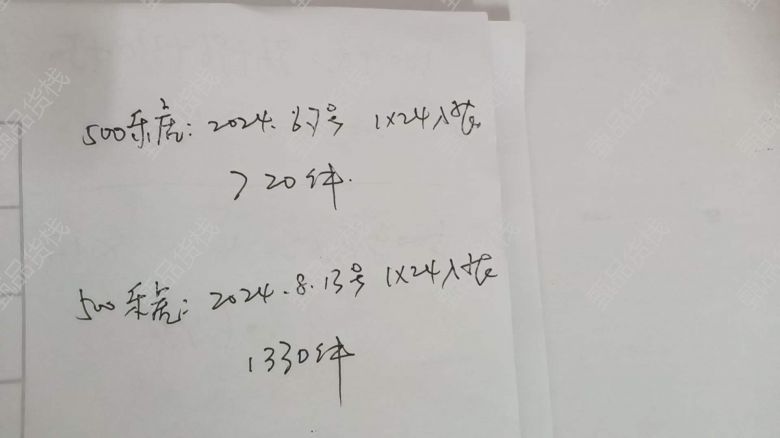 500乐虎: 2024.6.7号 1×24入花
720件.
500乐虎: 2024.8.13号 1×24入花
1330件